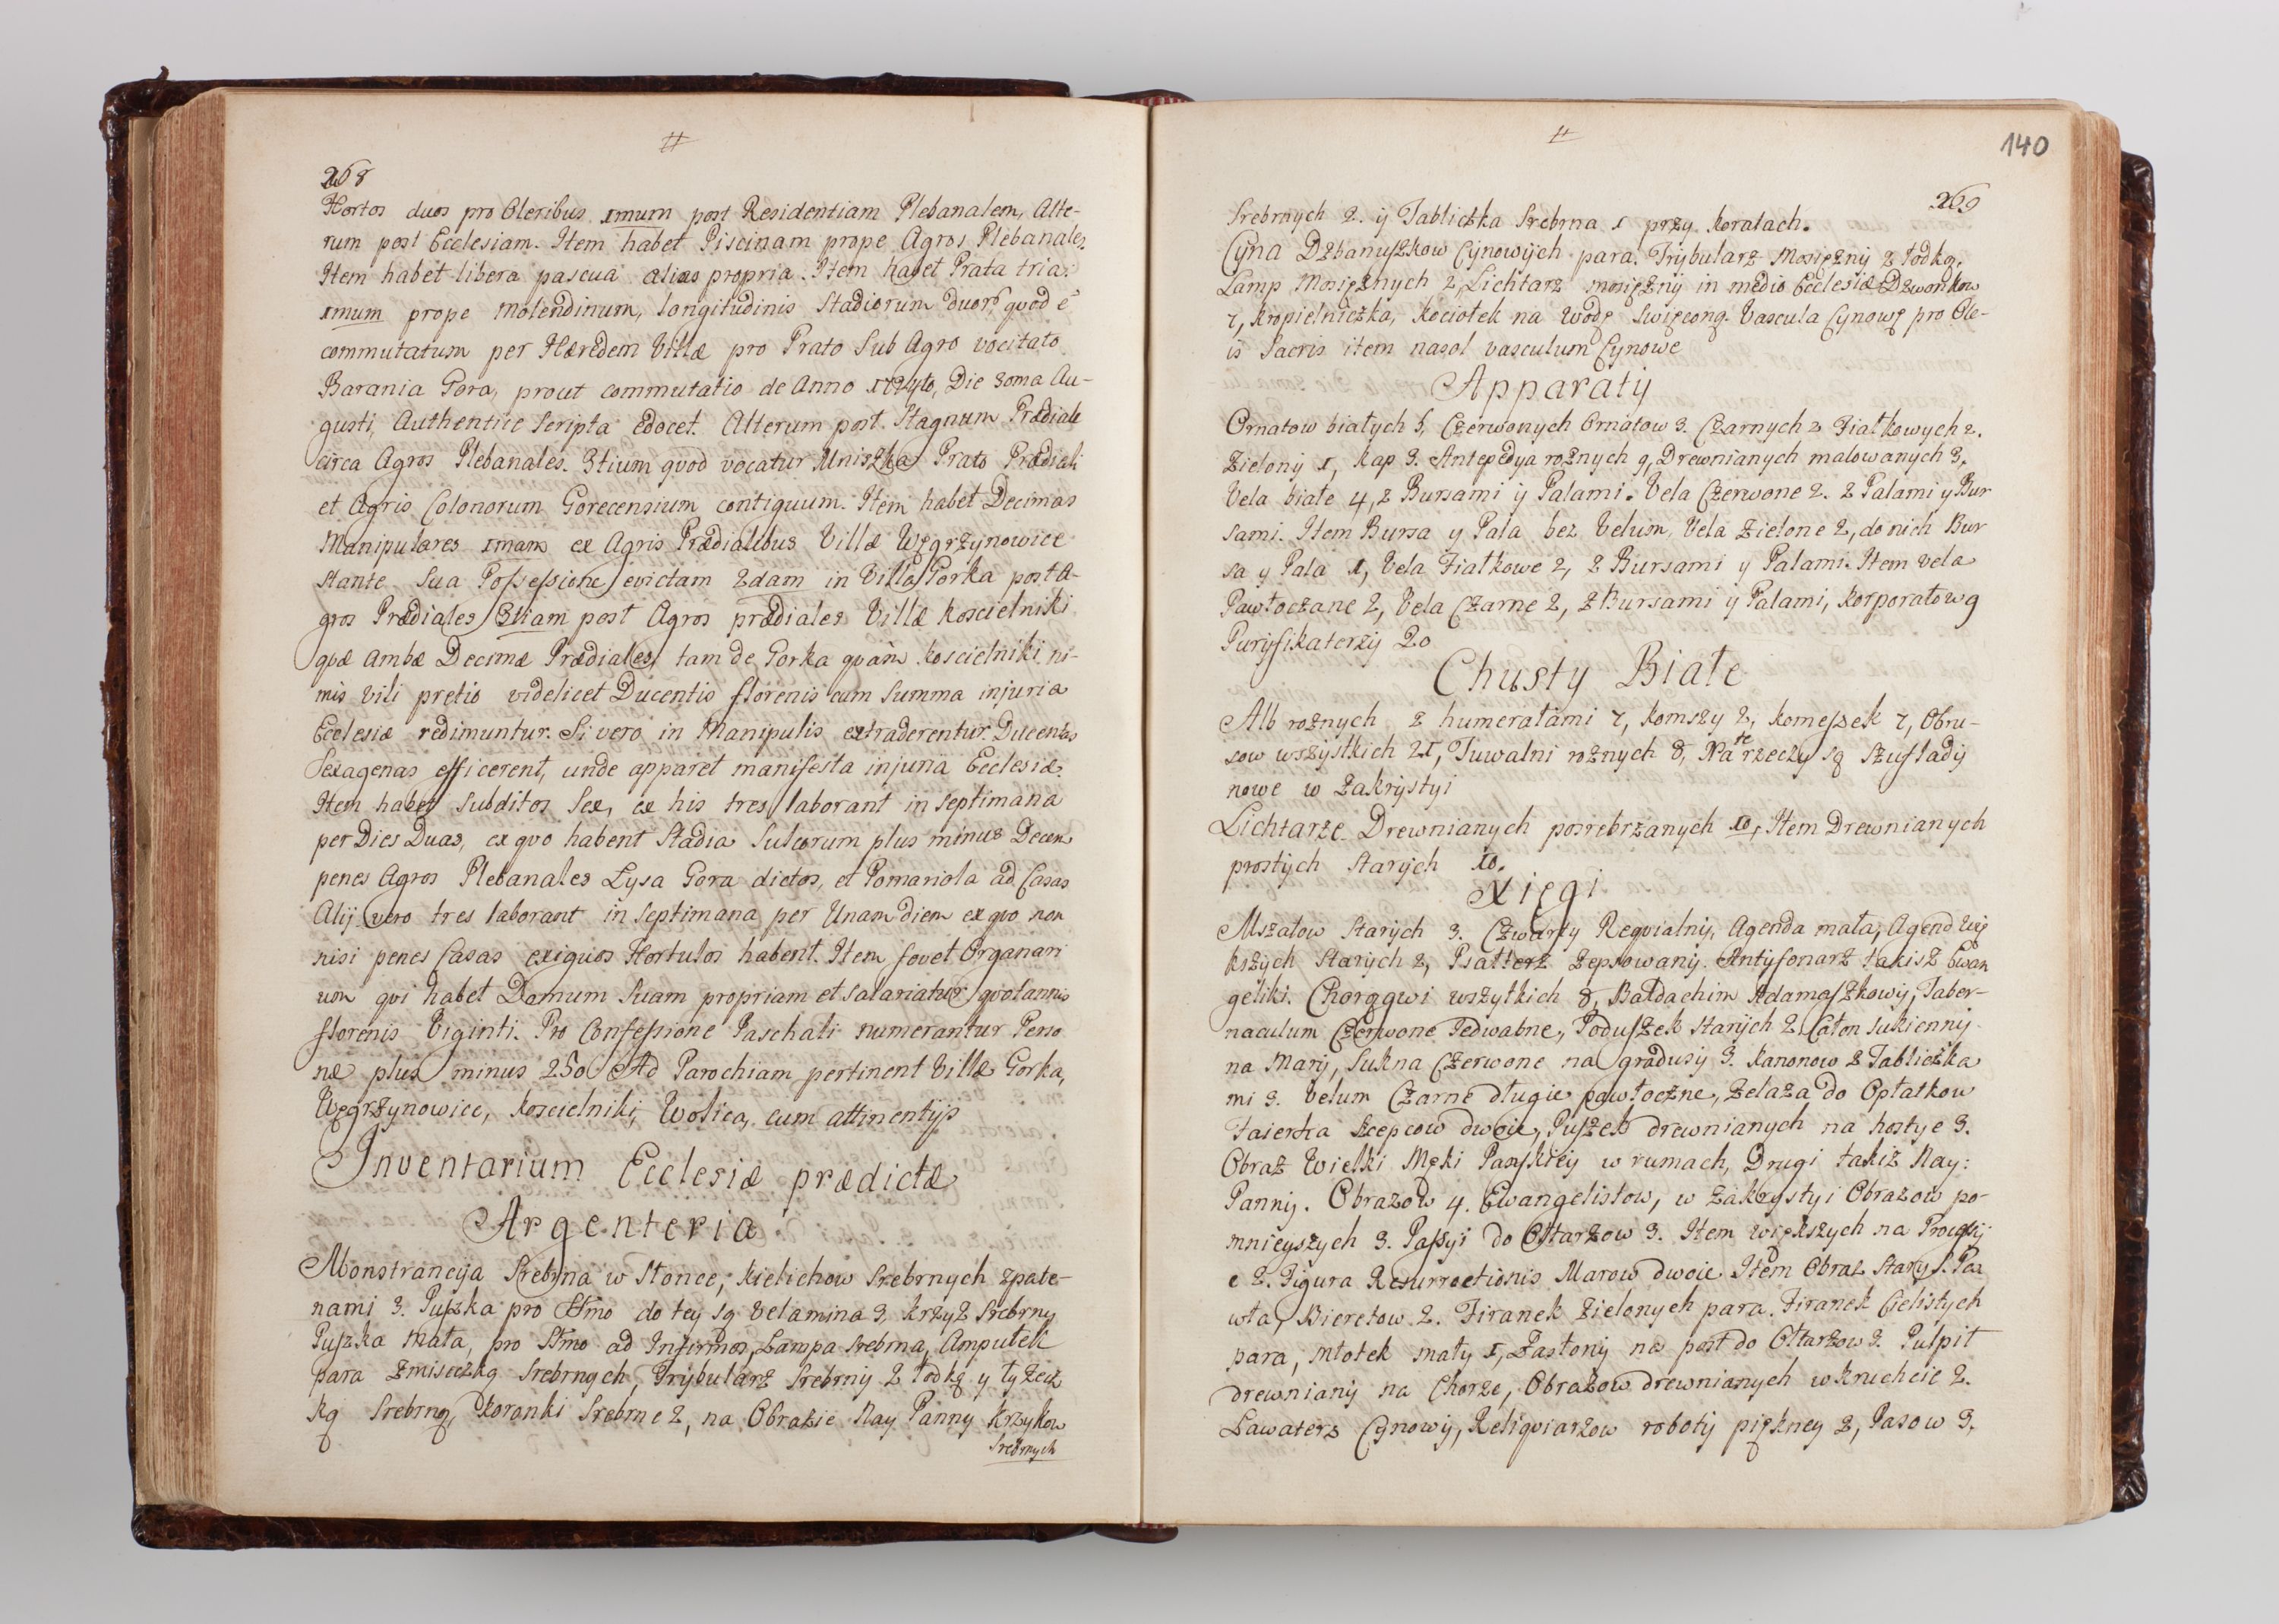 #
268
Hortos duos pro Oleribus 1mum post Residentiam Plebanalem, Alte-
rum post Ecclesiam. Item habet Piscinam prope Agros Plebanales
Item habet libera pascua alias propria. Item habet Prata tria:
1mum prope Molendinum, longitudinis Stadiorum duor, quod e
commutatum per Hæredem Villæ pro Prato Sub Agro vocitato
Barania Gora, prout commutatio de Anno Die 2oma Au-
gusti, Authentice Scripta edocet. Alterum post Stagnum Prædiale
circa Agros Plebanales. 3tium quod vocatur Mniszka Prato Prædiali
et Agris Colonorum Gorecensium contiguum. Item habet Decimas
Manipulares 1mam ex Agris Prædialibus Villæ Węgrzynowice
stante sua Possessione evictam 2dam in Villa Gorka post A-
gros Prædiales 3tiam post Agros prædiales Villæ Koscielniki
quæ ambæ Decimæ Prædiales tam de Gorka quàm Koscielniki ni-
mis vili pretio videlicet Ducentis florenis cum Summa injuria
Ecclesiæ redimuntur. Si vero in Manipulis extraderentur Ducentas
Sexagenas efficerent, unde apparet manifesta injuria Ecclesiæ.
Item habet Subditos Sex, ex his tres laborant in Septimana
per Dies Duas, ex quo habent Stadia Sulcorum plus minus Decem
penes Agros Plebanales Lysa Gora dictos, et Pomariola ad Casas
Alij vero tres laborant in Septimana per Unam diem ex quo non
nisi penes Casas exiguos Hortulos habent. Item fovet Organari
um qui habet Domum Suam propriam et Salariatur quotannis
florenis Viginti. Pro Confessione Paschali numerantur Perso
næ plus minus 250 Ad Parochiam pertinent Villæ Gorka,
Węgrzynowice, Koscielniki, Wolica, cum attinentijs
Inventarium Ecclesiæ prædictæ
Argenteria
Monstrancija Srebrna w Słonce, Kielichow Srebrnych zpate-
nami 3. Puszka pro SSmo do tey są Velamina 3, Krzyż Srebrny
Puszka Mała, pro SSmo ad Infirmos, Lampa Srebrna, Ampułek
para zmiseczką Srebrnych, Trybularz Srebrny z łodką y łyżecz
ką Srebrną, Koronki Srebrne 2, na Obrazie Nay Panny Krzykow
Srebrnych
#
140
269
Srebrnych 2. ÿ Tabliczka Srebrna 1 przy Koralach.
Cyna Dzbanuszkow Cynowÿch para. Trybularz Mosiężnÿ z łodką.
Lamp Mosiężnych 2, Lichtarz mosiężnÿ in medio Ecclesiæ Dzwonkow
7, Kropielniczka, Kociołek na Wodę Swięconą. Vascula Cynowe pro Ole-
is Sacris item nasol vasculum Cynowe
Apparatÿ
Ornatow białych 5, Czerwonych Ornatow 3. Czarnych 2 Fiałkowych 2.
Zielonÿ 1, Kap 3. Antepedya rożnych 9, Drewnianych malowanych 3,
Vela białe 4, z Bursami ÿ Palami. Vela Czerwone 2. z Palami y Bur
sami. Item Bursa y Pala bez Velum, Vela Zielone 2, do nich Bur
sa y Pala 1, Vela Fiałkowe 2, z Bursami y Palami. Item Vela
Pawłoczane 2, Vela Czarne 2, z Bursami ÿ Palami, Korporałow 9
Puryfikaterzÿ 20
Chusty Białe
Alb rożnych z humerałami 7, Komszy 2, Komeszek 7, Obru-
sow wszystkich 21, Tuwalni rożnych 8, Na te rzeczy są Szufladÿ
nowe w Zakrÿstyi
Lichtarze Drewnianych posrebrzanych 10, Item Drewnianych
prostÿch starÿch 10.
Xięgi
Mszałow Starÿch 3. Czwarty Requialnÿ, Agenda mała, Agend Wię
kszÿch Starÿch 2, Psałterz zepsowanÿ. Antyfonarz takisz Ewan
geliki. Chorągwi wszytkich 8, Baldachim Adamaszkowÿ, Taber-
naculum Czerwone Jedwabne, Poduszek starÿch 2 Całon Sukiennÿ
na Marÿ, Sukna Czerwone na gradusÿ 3. Kanonow z Tabliczka
mi 3. Velum Czarne długie pawłoczne, Żelaza do Opłatkow
Faierka Kcepcow dwoie, Puszek drewnianych na hostye 3.
Obraz Wielki Męki Panskiey w rumach, Drugi takiż Nay:
Pannÿ. Obrazow 4. Ewangelistow, w Zakrystyi Obrazow po-
mnieyszych 3. Passyi do Ołtarzow 3. Item większych na Processÿ
e 2. Figura Resurrectionis Marow dwoie Item Obraz Stary S. Pa
wła, Bieretow 2. Firanek Zielonych para. Firanek Cielistych
para, Młotek mały 1, Zasłonÿ na post do Ołtarzow 3. Pulpit
drewnianÿ na Chorze, Obrazow drewnianych w Kruchcie 2.
Lawaterz Cynowÿ, Reliquiarzow robotÿ piękney 2, Pasow 3,